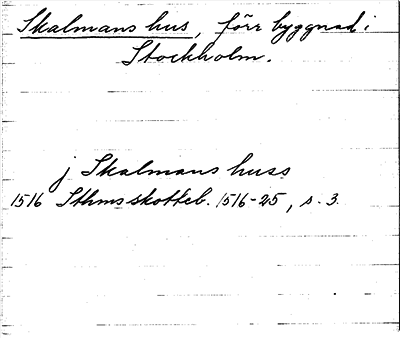 Skalmans hus, förr byggnad i
Stockholm.
j Skalmans huss
1516 Sthms skotteb. 1516-25, s. 3.